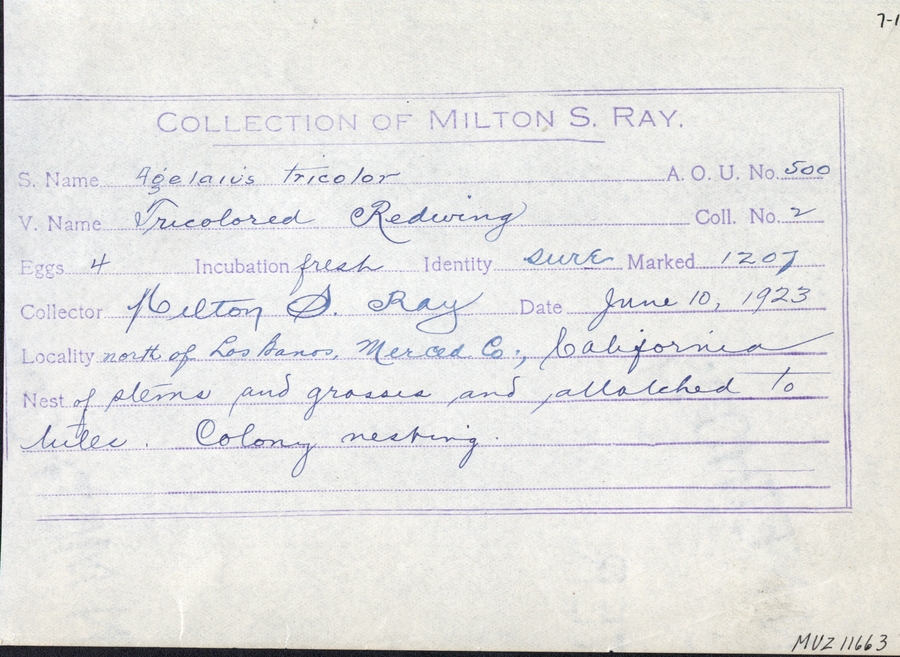 7-1
COLLECTION OF MILTON S. RAY.
S. Name Agelaius tricolor A. O. U. No. 500
V. Name Tricolored Redwing Coll. No. 2
Eggs 4 Incubation fresh Identity sure Marked 1207
Collector Milton S. Ray Date June 10, 1923
Locality north of Los Banos, Merced Co., California
Nest of stems and grasses and attatched to
tules. Colony nesting.
MVZ 11663